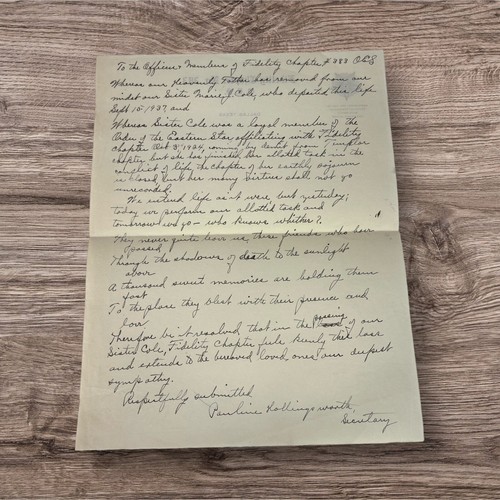 To the Officers & Members of Fidelity Chapter # 383 O.E.S
Whereas our Heavenly Father has removed from our
midst our Sister Marie J. Cole, who departed this life
Sept 15-1937 and
Whereas Sister Cole was a loyal member of the
Order of the Eastern Star, affiliating with Fidelity
chapter Oct 3, 1924, coming by demit from Templar
chapter, but she has finished her allotted task in the
conflict of life, the chapter of her earthly sojourn
is closed, but her many virtues shall not go
unrecorded.
We entered life as it were but yesterday;
today we perform our allotted task and
tomorrow we go - who knows whither?
They never quite leave us, these friends who have
passed
Through the shadows of death to the sunlight
above
A thousand sweet memories are holding them
fast
To the place they blest with their presence and
love
Therefore be it resolved that in the passing of our
Sister Cole, Fidelity Chapter feels keenly their loss
and extends to the bereaved loved ones our deepest
sympathy.
Respectfully submitted
Pauline Hollingsworth,
Secretary